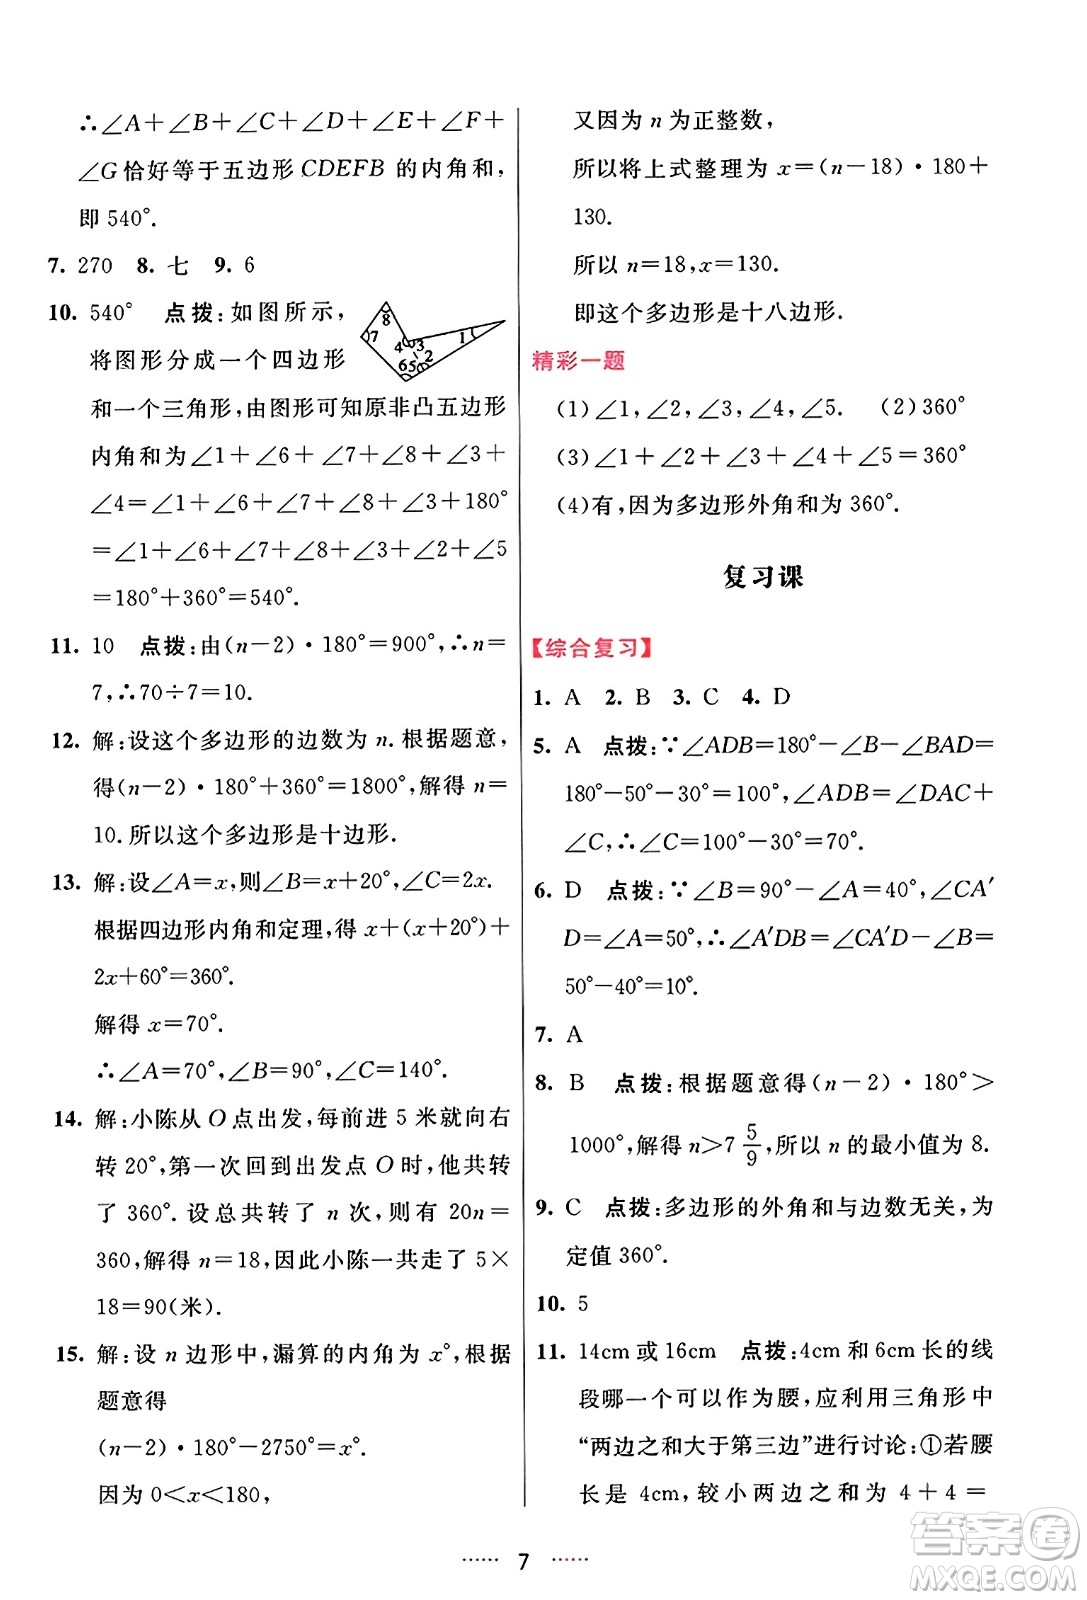 ∴∠A+∠B+∠C+∠D+∠E+∠F+
∠G恰好等于五边形CDEFB的内角和,
即540°.
7. 270 8. 七 9. 6
10. 540° 点拨:如图所示,
将图形分成一个四边形
和一个三角形,由图形可知原非凸五边形
内角和为∠1+∠2+∠8+∠7+∠3+
∠4=∠1+∠2+∠7+∠8+∠3+180°
=∠1+∠6+∠7+∠8+∠3+∠2+∠5
=180°+360°=540°.
8
7
4
3
1
2
6
5
1
11. 10 点拨:由(n-2)·180°=900°,∴n=
7,∴70÷7=10.
12. 解:设这个多边形的边数为n.根据题意,
得(n-2)·180°+360°=1800°,解得n=
10.所以这个多边形是十边形.
13. 解:设∠A=x,则∠B=x+20°,∠C=2x.
根据四边形内角和定理,得x+(x+20°)+
2x+60°=360°.
解得x=70°.
∴∠A=70°,∠B=90°,∠C=140°.
14. 解:小陈从O点出发,每前进5米就向右
转20°,第一次回到出发点O时,他共转
了360°.设总共转了n次,则有20n=
360,解得n=18,因此小陈一共走了5×
18=90(米).
15. 解:设n边形中,漏算的内角为x°,根据
题意得
(n-2)·180°-2750°=x°.
因为0<x<180,
又因为n为正整数,
所以将上式整理为x=(n-18)·180+
130.
所以n=18,x=130.
即这个多边形是十八边形.
精彩一题
(1)∠1,∠2,∠3,∠4,∠5. (2)360°
(3)∠1+∠2+∠3+∠4+∠5=360°
(4)有,因为多边形外角和为360°.
复习课
【综合复习】
1. A 2. B 3. C 4. D
5. A 点拨:∵∠ADB=180°-∠B-∠BAD=
180°-50°-30°=100°,∠ADB=∠DAC+
∠C,∴∠C=100°-30°=70°.
6. D 点拨:∵∠B=90°-∠A=40°,∠CA′
D=∠A=50°,∴∠A′DB=∠CA′D-∠B=
50°-40°=10°.
7. A
8. B 点拨:根据题意得(n-2)·180°>
1000°,解得n>7 5/9,所以n的最小值为8.
9. C 点拨:多边形的外角和与边数无关,为
定值360°.
10. 5
11. 14cm或16cm 点拨:4cm和6cm长的线
段哪一个可以作为腰,应利用三角形中
“两边之和大于第三边”进行讨论:①若腰
长是4cm,较小两边之和为4+4=
······ 7 ······
答案卷
MXQE.COM